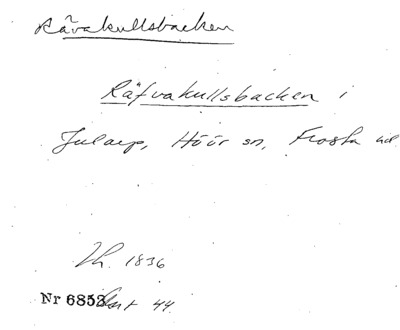 Råvakullsbacken
Räfvakullsbacken i
Jularp, Höör sn, Frosta hd
Th. 1836
Nr 6853 44